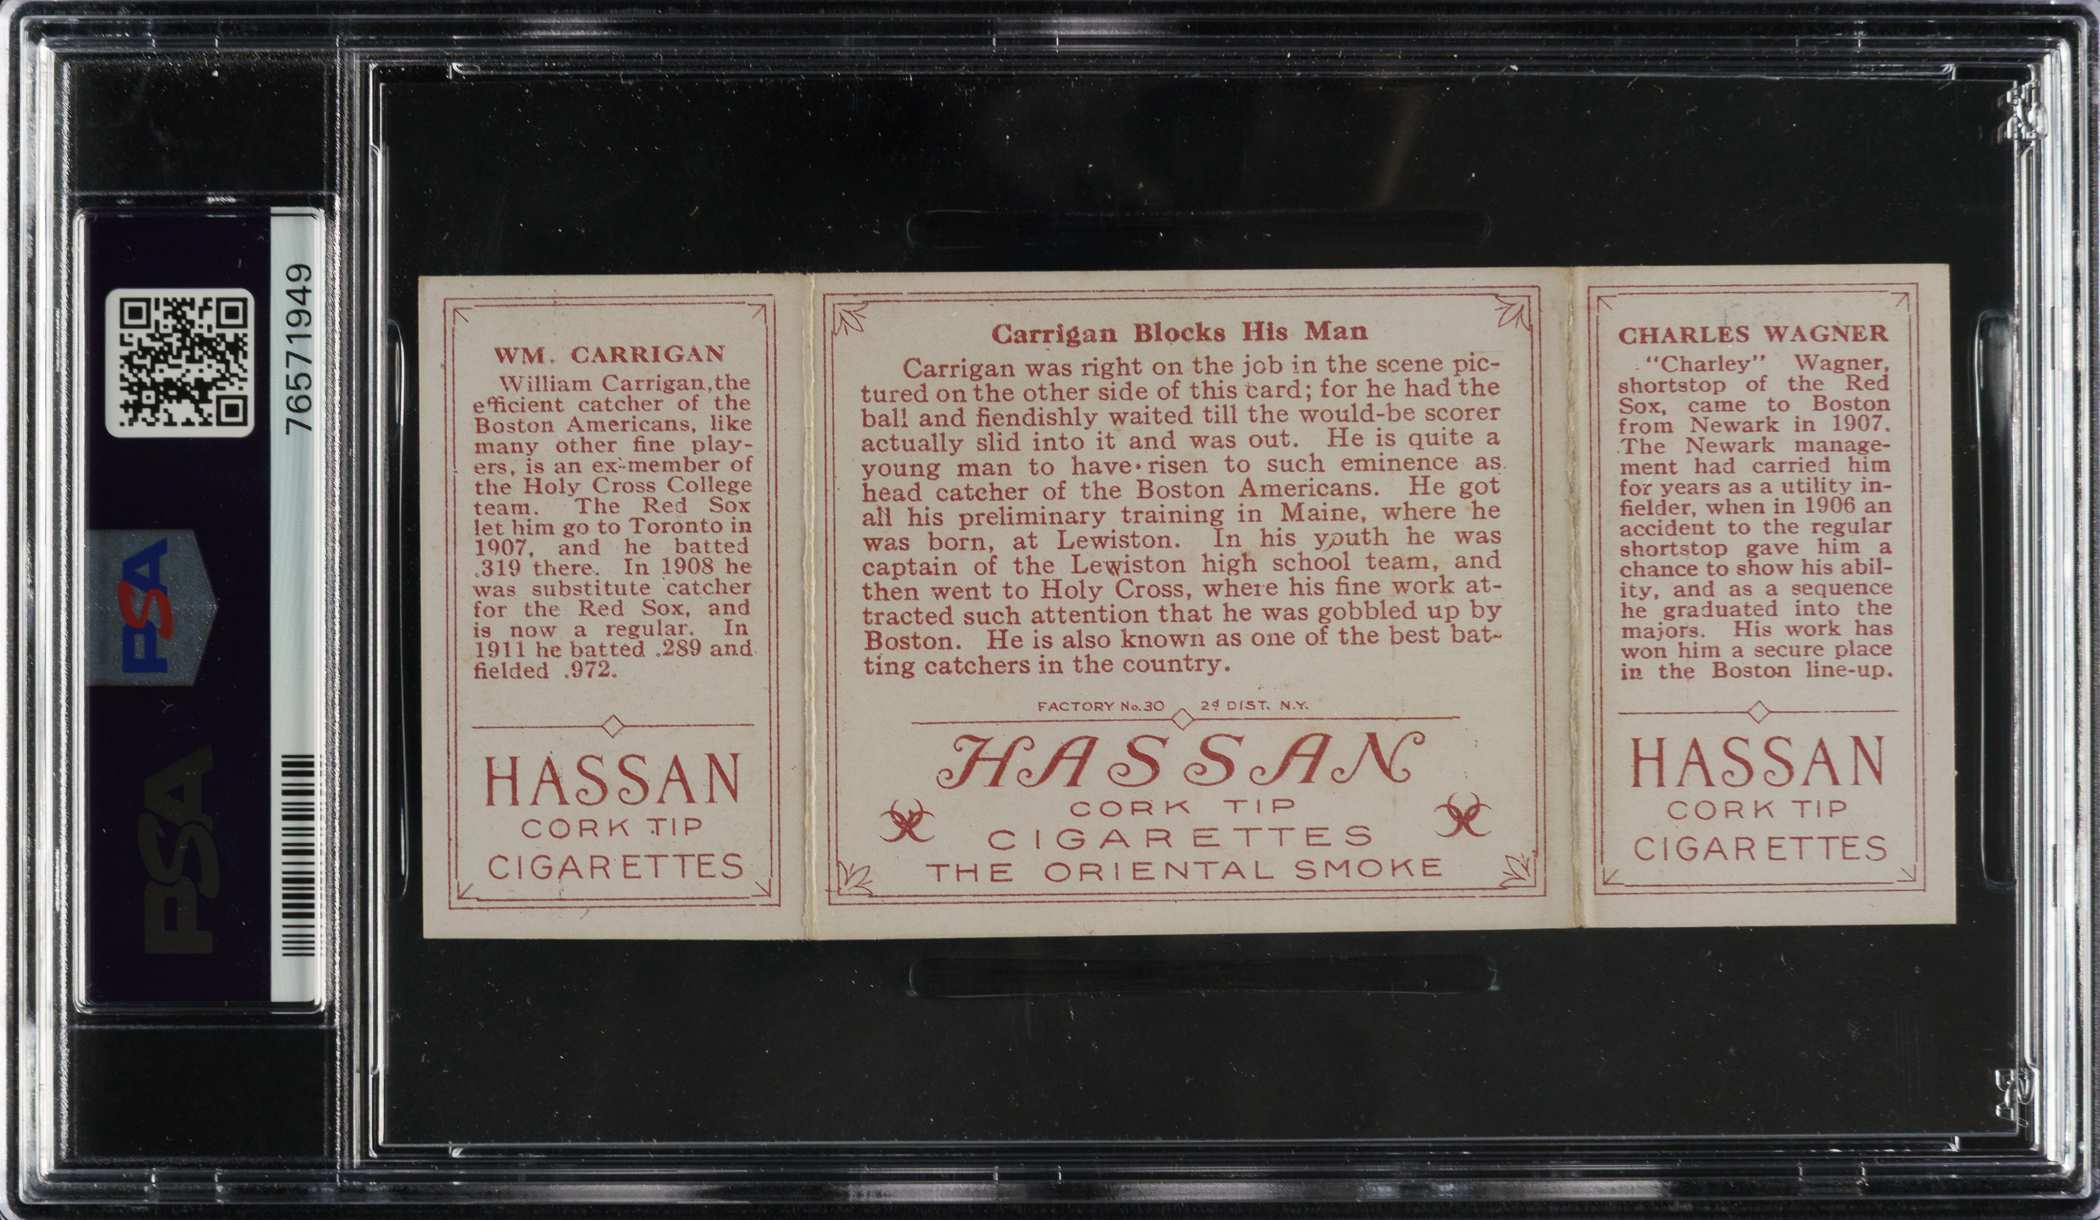 76571949
PSA
PSA
WM. CARRIGAN
William Carrigan, the
efficient catcher of the
Boston Americans, like
many other fine play-
ers, is an ex-member of
the Holy Cross College
team. The Red Sox
let him go to Toronto in
1907, and he batted
.319 there. In 1908 he
was substitute catcher
for the Red Sox, and
is now a regular. In
1911 he batted .289 and
fielded .972.
HASSAN
CORK TIP
CIGARETTES
Carrigan Blocks His Man
Carrigan was right on the job in the scene pic-
tured on the other side of this card; for he had the
ball and fiendishly waited till the would-be scorer
actually slid into it and was out. He is quite a
young man to have risen to such eminence as
head catcher of the Boston Americans. He got
all his preliminary training in Maine, where he
was born, at Lewiston. In his youth he was
captain of the Lewiston high school team, and
then went to Holy Cross, where his fine work at-
tracted such attention that he was gobbled up by
Boston. He is also known as one of the best bat-
ting catchers in the country.
FACTORY No.30 2d DIST. N.Y.
HASSAN
CORK TIP
CIGARETTES
THE ORIENTAL SMOKE
CHARLES WAGNER
"Charley" Wagner,
shortstop of the Red
Sox, came to Boston
from Newark in 1907.
The Newark manage-
ment had carried him
for years as a utility in-
fielder, when in 1906 an
accident to the regular
shortstop gave him a
chance to show his abil-
ity, and as a sequence
he graduated into the
majors. His work has
won him a secure place
in the Boston line-up.
HASSAN
CORK TIP
CIGARETTES